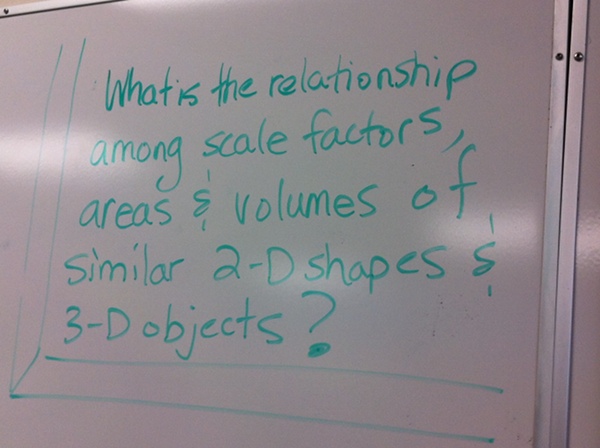 What is the relationship
among scale factors,
areas & volumes of
similar 2-D shapes &
3-D objects?